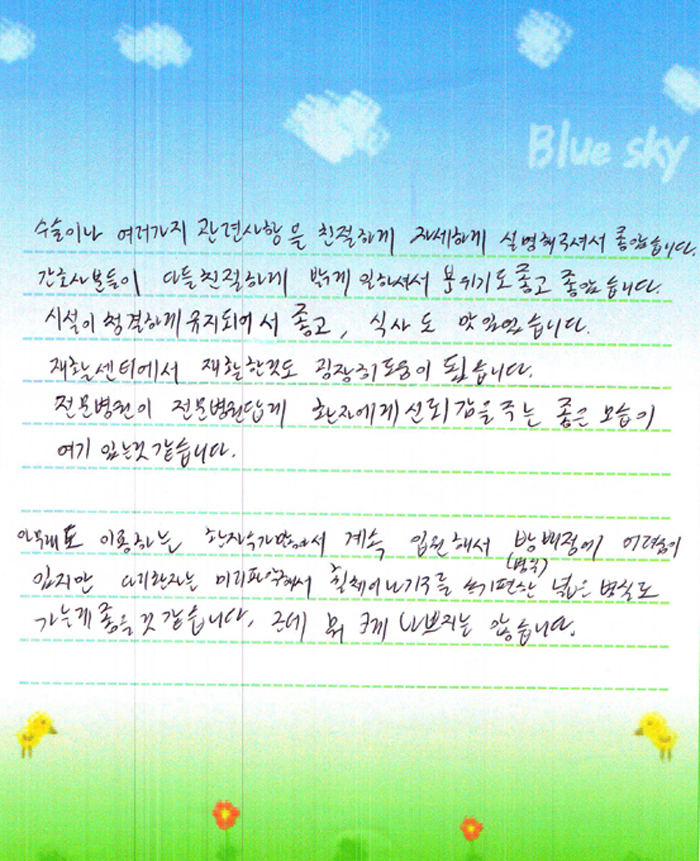 Blue sky
수술이나 여러가지 관련사항을 친절하게 자세하게 설명해주셔서 좋았습니다.
간호사분들이 다들 친절하게 밝게 일하셔서 분위기도 좋고 좋았습니다.
시설이 청결하게 유지되어서 좋고, 식사도 맛있었습니다.
재활센터에서 재활한것도 굉장히 도움이 됬습니다.
전문병원이 전문병원답게 환자에게 신뢰감을 주는 좋은 모습이
여기 있는것 같습니다.
아무래도 이용하는 환자수가 많아서 계속 입원해서 방배정에 어려움이
(병실)
있지만 다리환자는 미리파악해서 휠체어나 기구를 쓰기편한 넓은 병실로
가는게 좋을것 같습니다. 근데 뭐 크게 나쁘지는 않습니다.